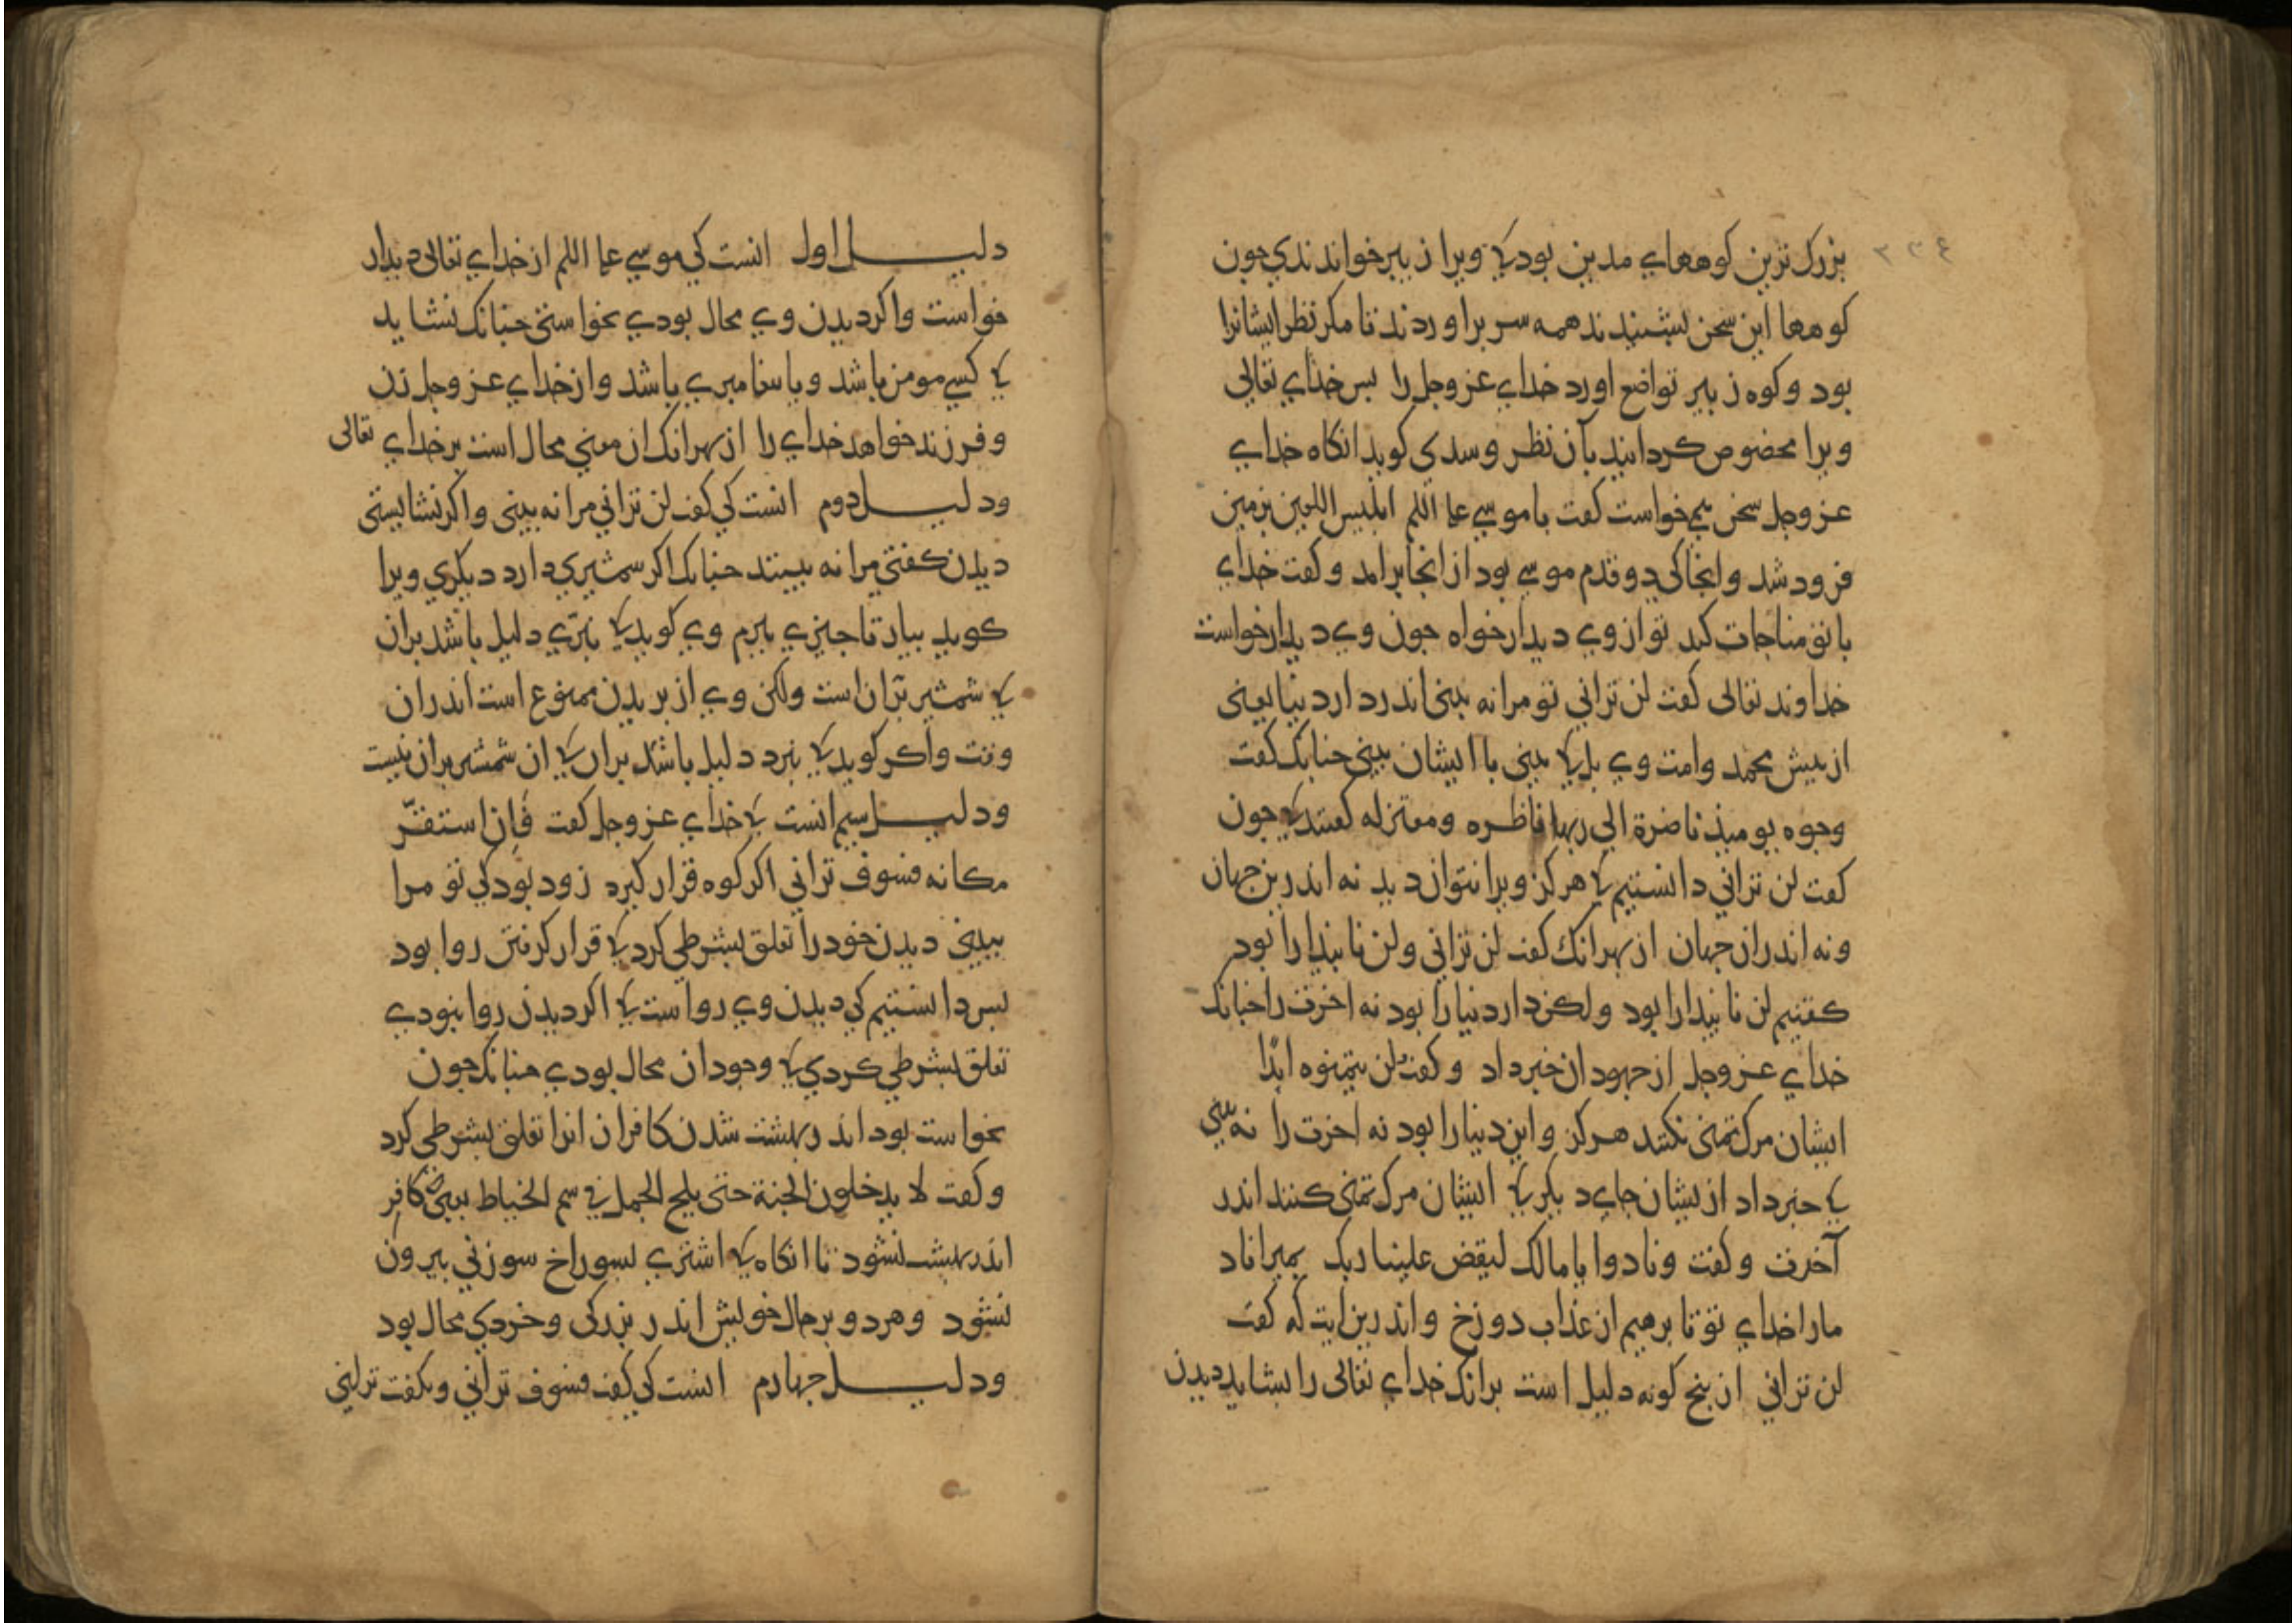 بزرک ترین کوههاے مدین بود کی ویرا زبیر خواندندی جون
کوهها این سخن بشنیدند همه سر براوردند تا مکر نظر ایشانرا
بود وکوه زبیر تواضع اورد خداے عز وجل را بس خذاے تعالی
ویرا مخصوص کردانید بآن نظر وسدی کوید انکاه خداے
عز وجل سخن می خواست کفت با موسی علیه السلم ابلیس اللعین بزمین
فرود شد وانجا کی دو قدم موسی بود از انجا برامد وکفت خداے
با تو مناجات کرد تو از وے دیدار خواه جون وے دیدار خواست
خداوند تعالی کفت لن ترانی تو مرا نه بینی اندر دار دنیا یعنی
از بیش محمد وامت وے بل کی بینی با ایشان بینی جنانک کفت
وجوه یومیذ ناضرة الی ربها ناظره ومعتزله کفتند کی جون
کفت لن ترانی دانستیم کی هرکز ویرا نتوان دید نه اندرین جهان
ونه اندران جهان از بهر انک کفت لن ترانی ولن تابیدا را بود
کفتیم لن تابیدا را بود ولکن دار دنیا را بود نه اخرت را جنانک
خداے عز وجل از جهودان خبر داد وکفت لن یتمنوه ابدًا
ایشان مرک تمنی نکنند هرکز واین دنیا را بود نه اخرت را نه بینی
کی خبر داد از یشان جاے دیکر کی ایشان مرک تمنی کنند اندر
آخرت وکفت ونادوا یا مالک لیقض علینا ربک بمیراناد
مارا خداے تو تا برهیم از عذاب دوزخ واندرین ایت که کفت
لن ترانی از بنج کونه دلیل است برانک خداے تعالی را بشاید دیدن
دلیل اول انست کی موسی علیه السلم از خداے تعالی دیدار
خواست واکر دیدن وے محال بودے نخواستی جنانک نشاید
کی کسی مومن باشد ویا بیغامبرے باشد واز خداے عز وجل زن
وفرزند خواهد خداے را از بهر انک ان معنی محال است بر خداے تعالی
ودلیل دوم انست کی کفت لن ترانی مرا نه بینی واکر نشایستی
دیدن کفتی مرا نه بینند جنانک اکر شمشیری دارد دیکری ویرا
کوید بیار تا جیزے ببرم وے کوید کی نبرّے دلیل باشد بران
کی شمشیر برّان است ولکن وے از بریدن ممنوع است اندران
وقت واکر کوید کی نبرد دلیل باشد بران کی ان شمشیر بران نیست
ودلیل سیم انست کی خداے عز وجل کفت فَاِن استقرّ
مکانه فسوف ترانی اکر کوه قرار کیرد زود بود کی تو مرا
ببینی دیدن خود را تعلق بشرطی کرد کی قرار کرفتن روا بود
بس دانستیم کی دیدن وے رواست کی اکر دیدن روا نبودے
تعلق بشرطی کردی کی وجود ان محال بودے جنانک جون
نخواست بود اندر بهشت شدن کافران انرا تعلق بشرطی کرد
وکفت لا یدخلون الجنة حتی یلج الجمل فی سم الخیاط یعنی کافِر
اندر بهشت نشود تا انکاه کی اشترے بسوراخ سوزنی بیرون
نشود وهردو بر حال خویش اندر بزرکی وخردی محال بود
ودلیل جهارم انست کی کفت فسوف ترانی ونکفت ترانی